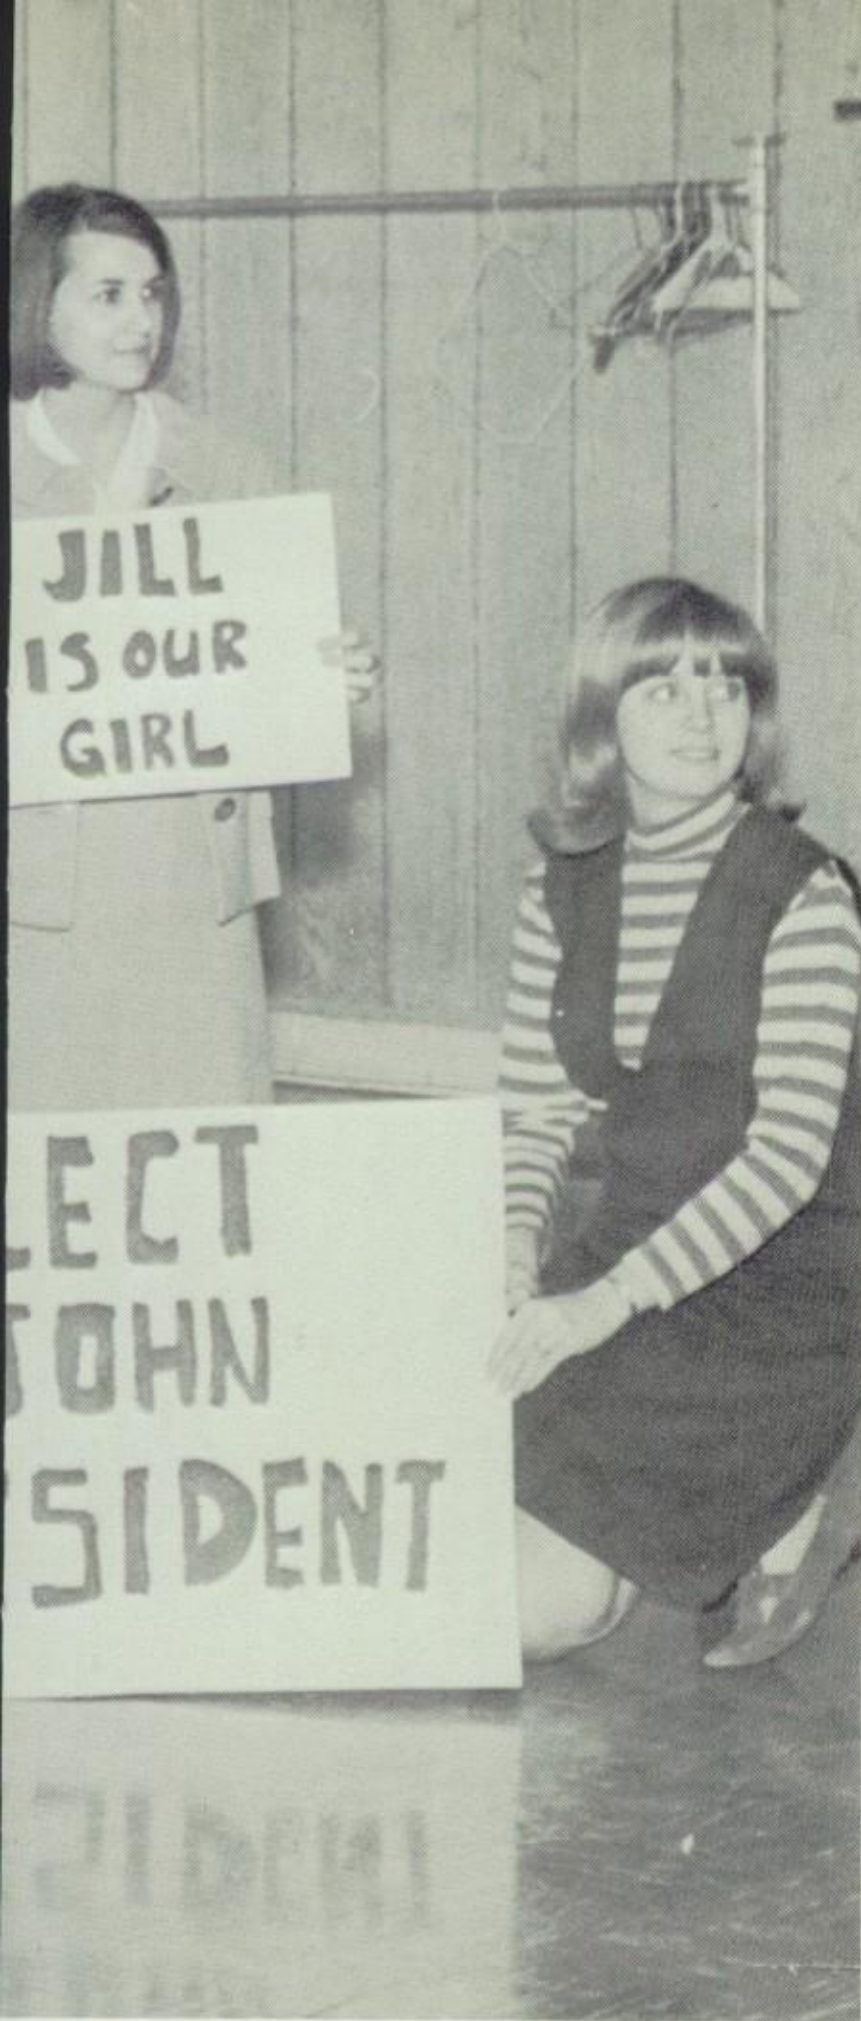 JILL
IS OUR
GIRL
LECT
JOHN
SIDENT